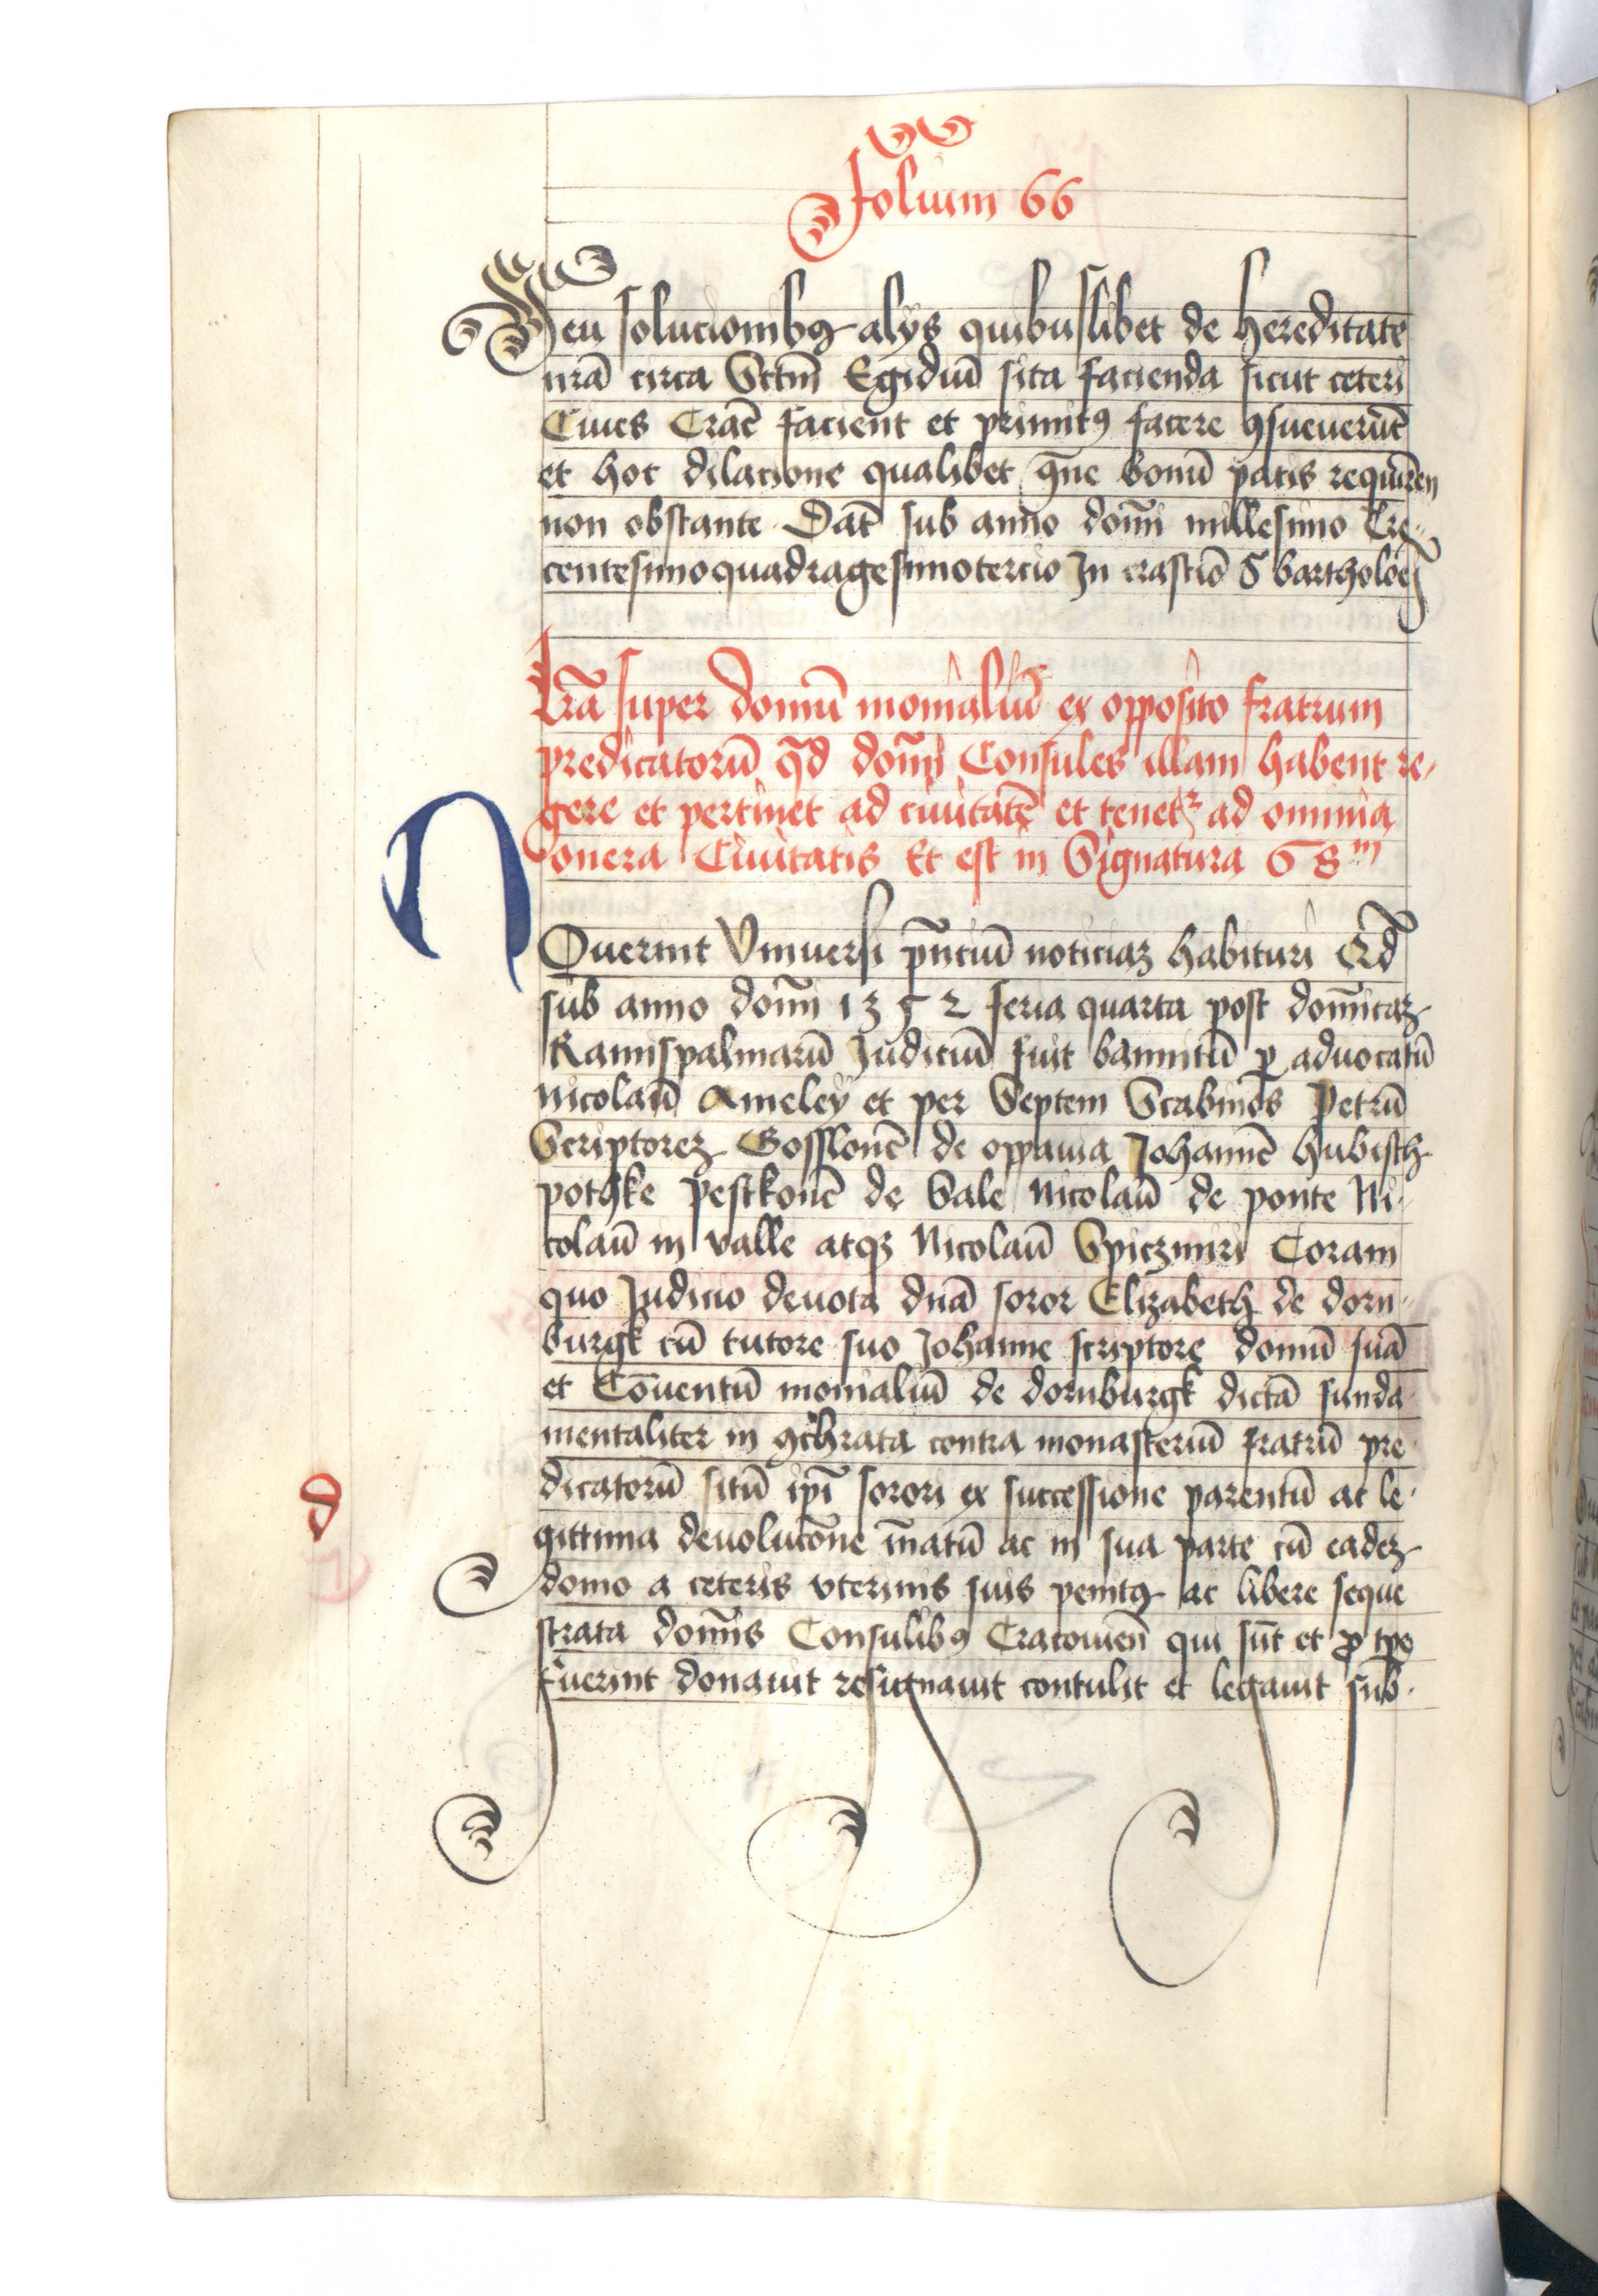 Folium 66
Seu solucionibꝯ alys quibuslibet de hereditate
nrã circa Sctm̃ Egidiũ sita facienda sicut ceteri
Ciues Crac̃ facient et primitꝯ facere ꝯsueuerũt
et hoc dilacione qualibet bonũ pacis requirẽ
non obstante Dat̃ sub anno domĩ millesimo Tre-
centesimoquadragesimotercio In crastĩo S bartholoej
Lrã super domũ monialiũ ex opposito fratrum
predicatorũ qd̃ domĩ Consules illam habent re-
gere et pertinet ad ciuitatẽ et tenetꝛ ad omnia
onera Ciuitatis Et est in Signatura 68
NOuerint Vniuersi pñciũ noticiaꝫ habituri Qd̃
sub anno domĩ 1352 feria quarta post domĩcaꝫ
Ramispalmarũ Judiciũ fuit bannitũ ꝑ aduocatũ
Nicolaũ Ameley et per Septem Scabinos Petrũ
Scriptoreꝫ Gosslonẽ de oppauia Johannẽ hubisch
pothke Pesckonẽ de Sale Nicolaũ de ponte Ni-
colaũ in valle atqꝫ Nicolaũ Spiczmiri Coram
quo Judicio deuota dnã soror Elizabeth de dorn-
burgk cũ tutore suo Johanne scriptore domũ suã
et Cõuentũ monialiũ de dornburgk dictã funda-
mentaliter in contra monasteriũ fratrũ pre-
dicatorũ sitũ ip̃i sorori ex successione parentũ ac le-
gittima deuolucõne ac in sua parte cũ eadeꝫ
domo a ceteris vterinis suis penitꝯ ac libere seque
strata domĩs Consulibꝯ Cracouieñ qui sũt et ꝓ tp̃e
fuerint donauit resignauit contulit et legauit sub-
d